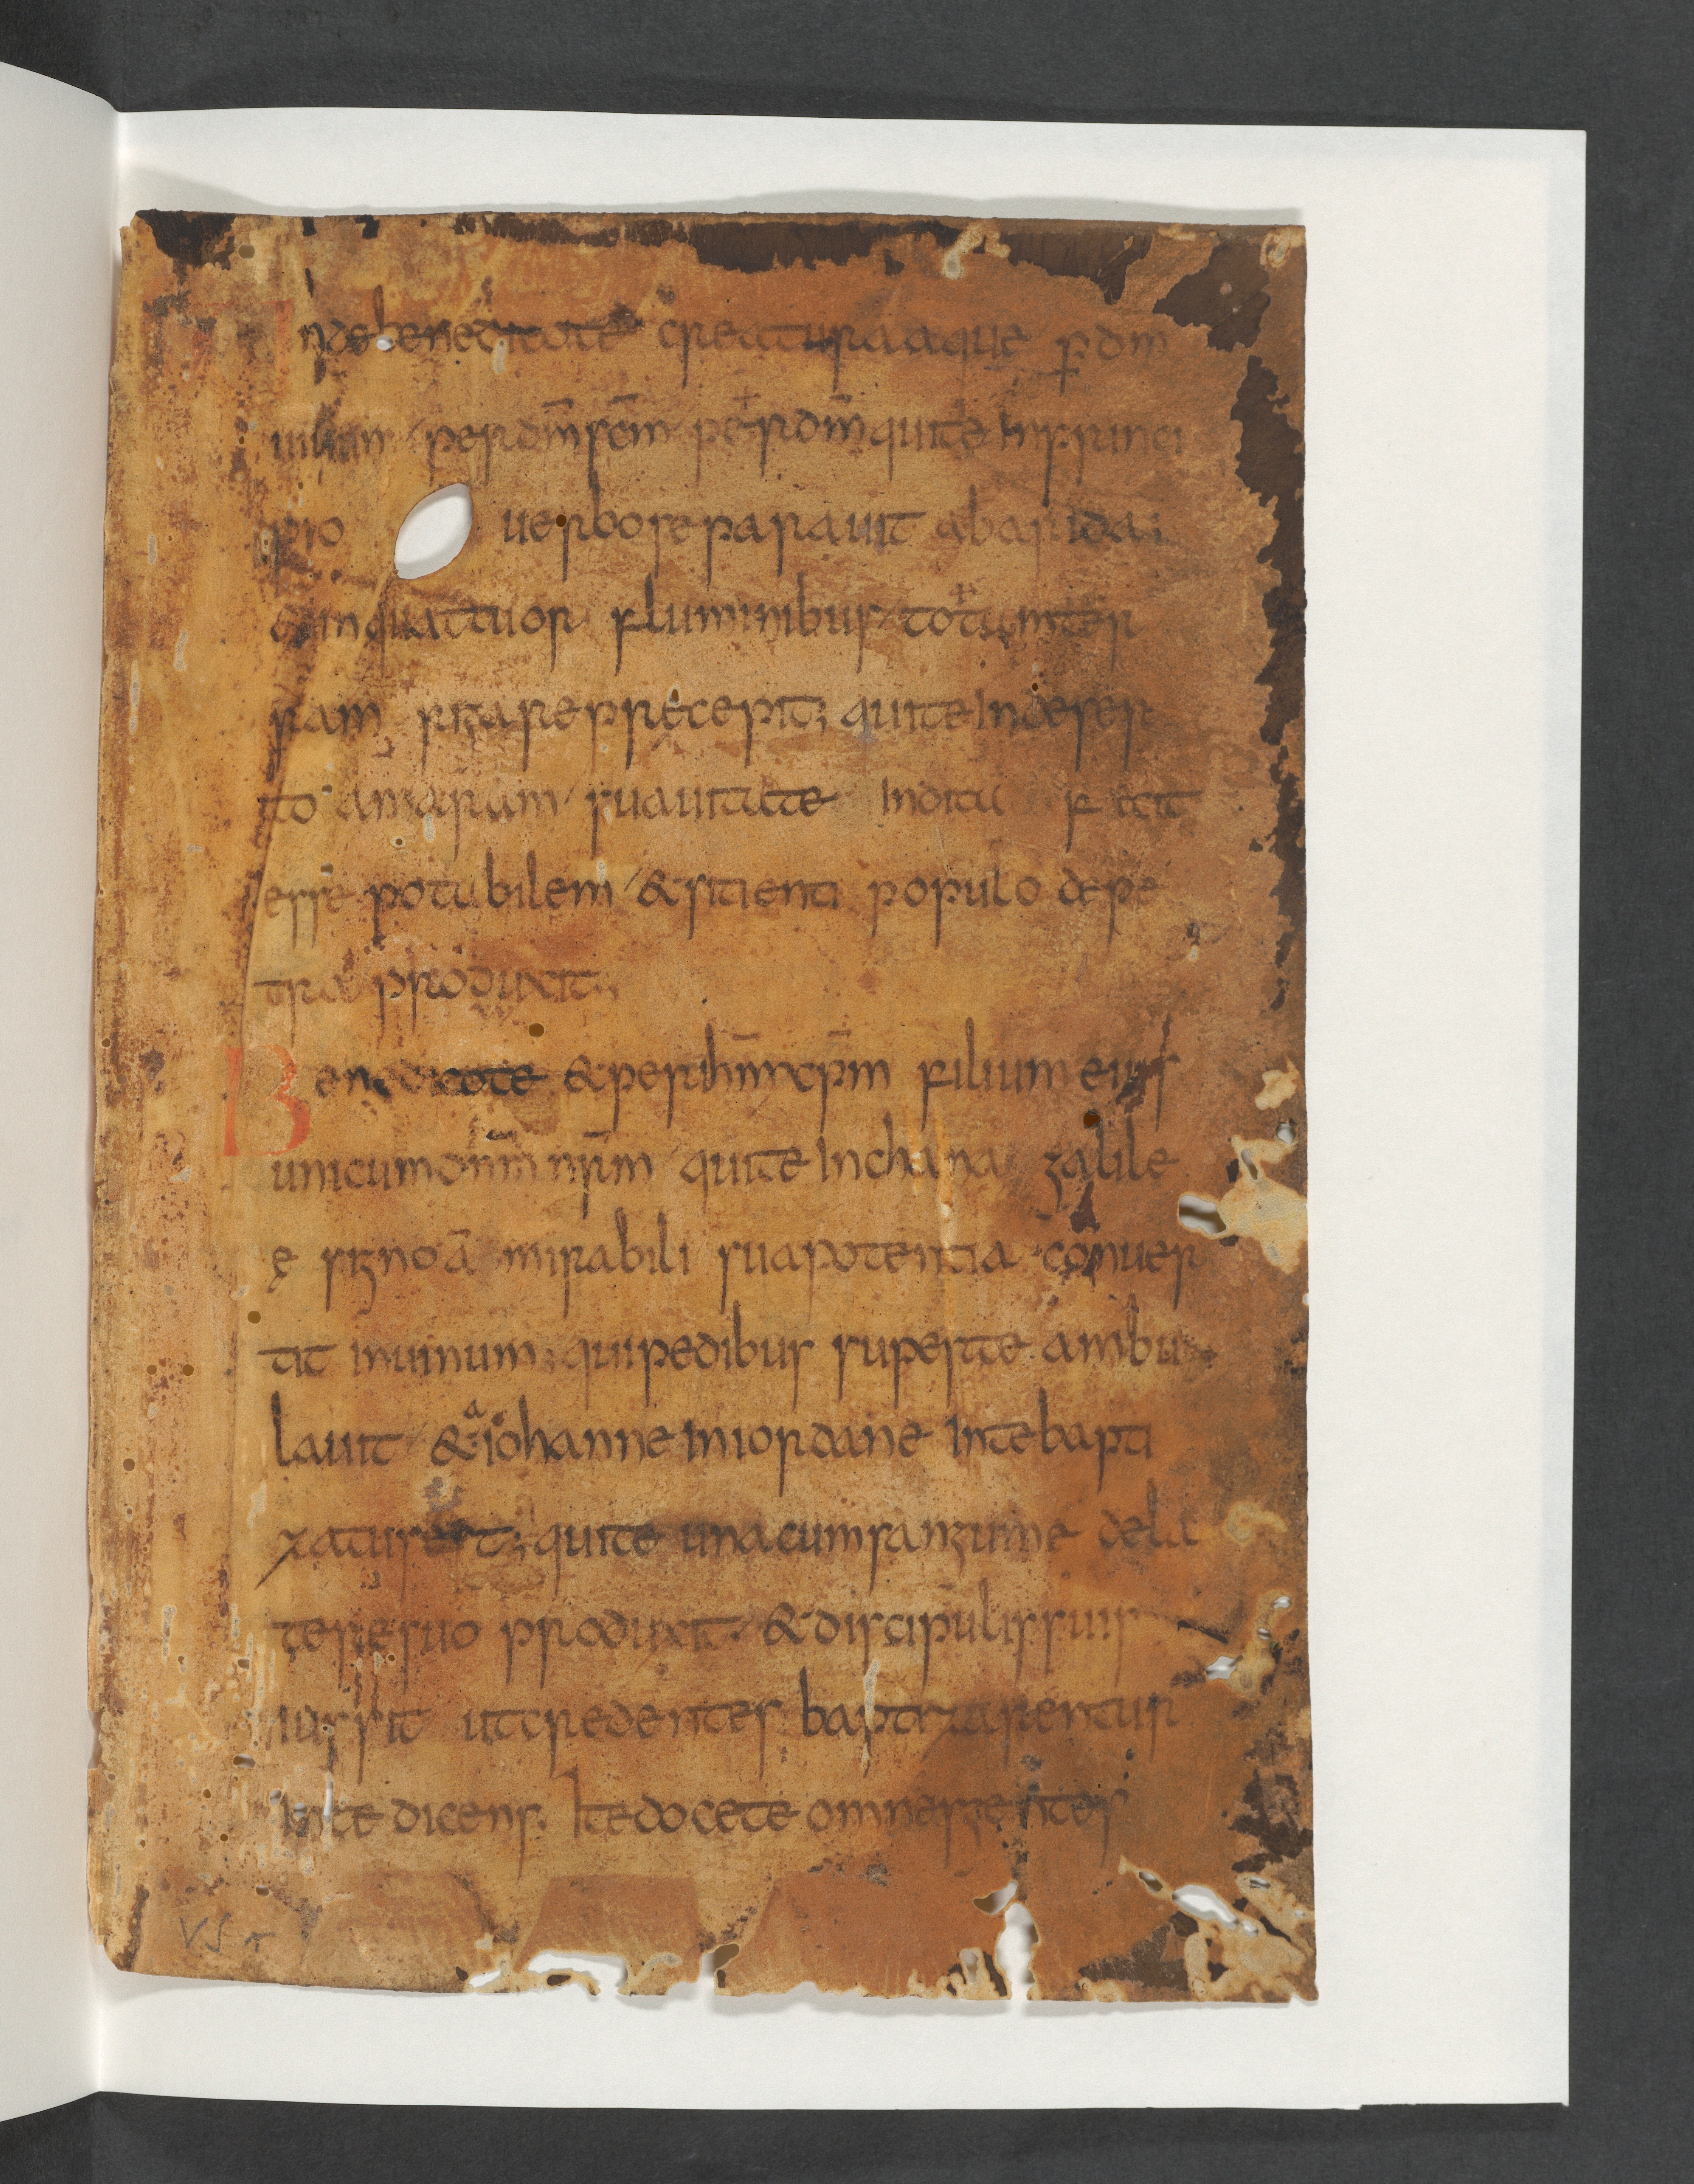 Unde benedico te creatura aquę ꝑ dm̄
uiuum per dm̄ scm̄ per dm̄ qui te in princi
pio uerbo separauit ab arida;
& in quattuor fluminibus totam ter
ram rigare precepit; qui te in deser
to amaram suauitate indita fecit
esse potabilem & sitienti populo de pe
tra produxit;
Benedico te & per ihm̄ xp̄m filium eius
unicum dnm̄ nr̄m qui te in chana galile
ę signo ā mirabili sua potentia conuer
tit in uinum; qui pedibus super te ambu
lauit & a iohanne in iordane in te bapti
zatus est; qui te una cum sanguine de la
tere suo produxit & discipulis suis
iussit ut credentes baptizarentur
in te dicens. Ite docete omnes gentes